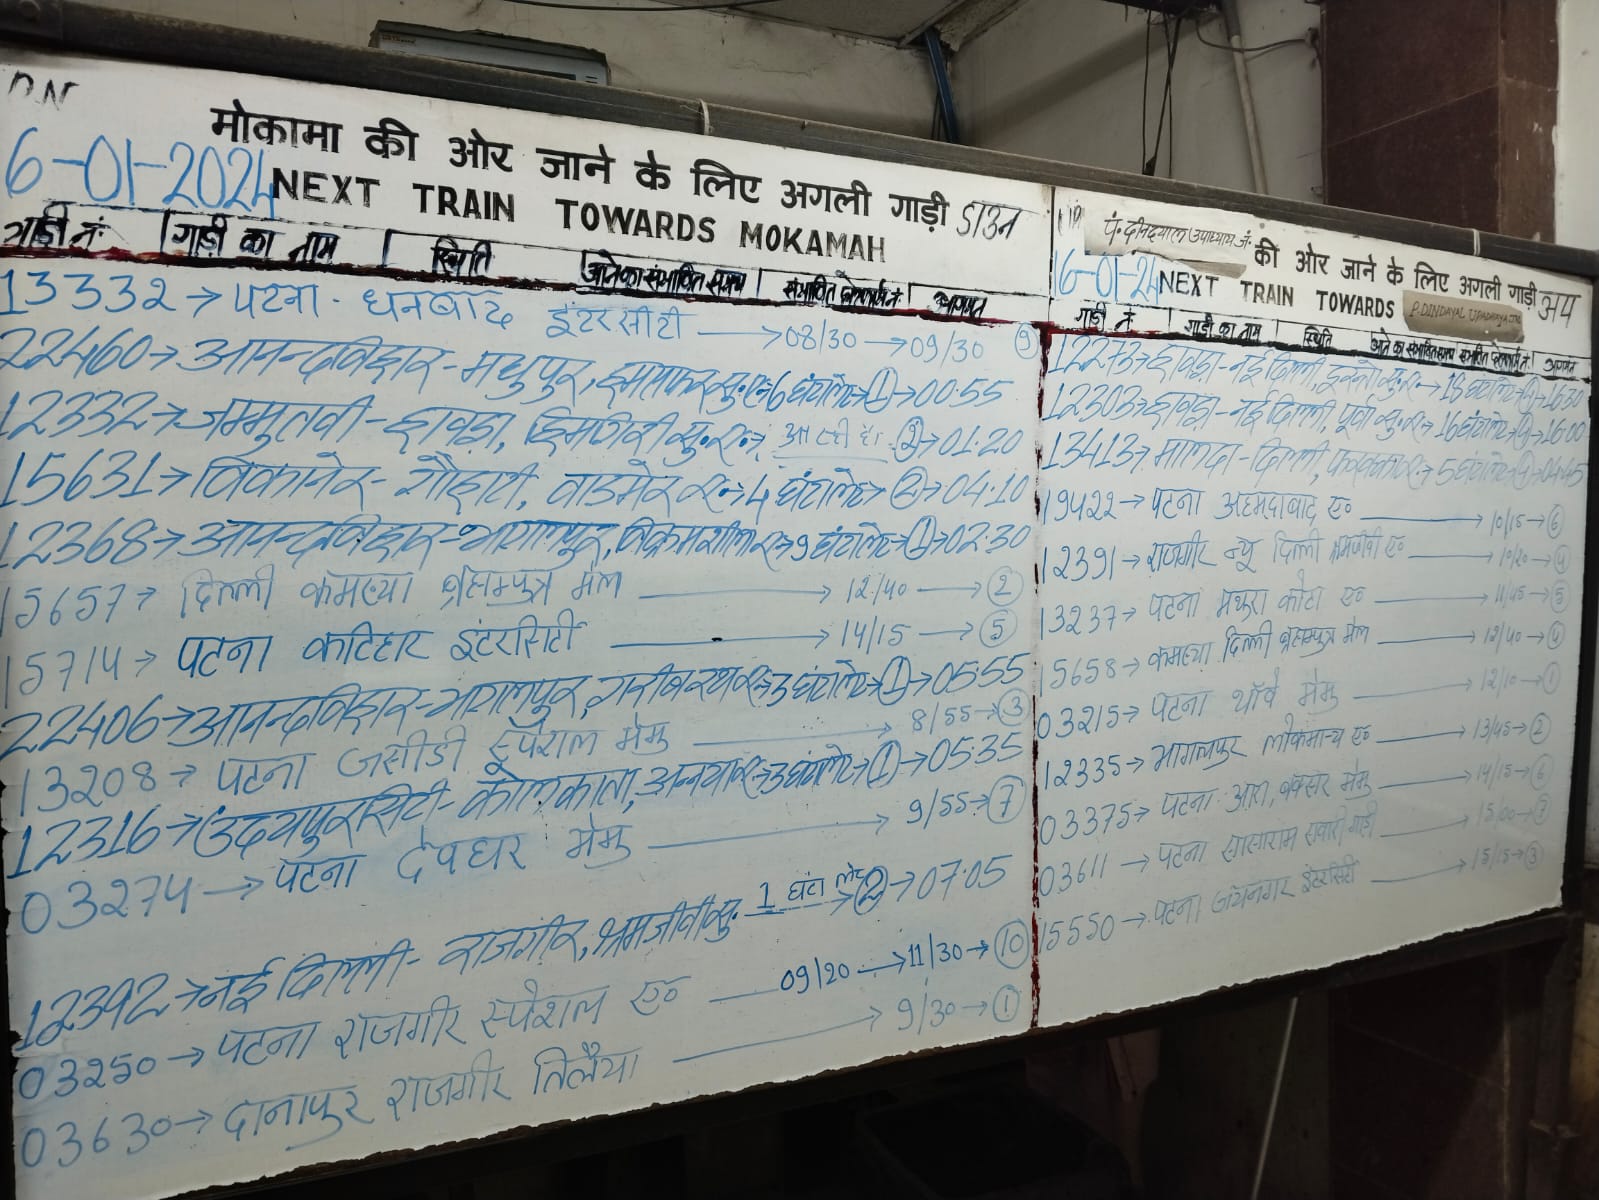 DN
मोकामा की ओर जाने के लिए अगली गाड़ी डाउन
6-01-2024 NEXT TRAIN TOWARDS MOKAMAH
गाड़ी नं. गाड़ी का नाम स्थिति आने का संभावित समय संभावित प्लेटफार्म नं. आगमन
13332 → पटना - धनबाद इंटरसीटी → 08/30 → 09/30 9
22460 → आनन्दविहार - मधुपुर, हमसफर सु. ए. → 6 घंटा लेट → 1 → 00:55
12332 → जम्मुतवी - हावड़ा, हिमगिरी सु. ए. → आ रही है। 2 → 01:20
15631 → बिकानेर - गौहाटी, बाडमेर ए. → 4 घंटा लेट → 2 → 04:10
12368 → आनन्दविहार - भागलपुर, विक्रमशीला ए. → 9 घंटा लेट → 1 → 02:30
15657 → दिल्ली कमख्या ब्रह्मपुत्र मेल → 12/40 → 2
15714 → पटना कटिहार इंटरसिटी → 14/15 → 5
22406 → आनन्दविहार - भागलपुर, गरीबरथ ए. → 3 घंटा लेट → 1 → 05:55
13208 → पटना जसीडी स्पेशल मेमु → 8/55 → 3
12316 → उदयपुरसिटी - कोलकाता, अनन्या ए. → 3 घंटा लेट → 1 → 05:35
03274 → पटना देवघर मेमु → 9/55 → 7
12392 → नई दिल्ली - राजगीर, श्रमजीवी सु. 1 घंटा लेट → 2 → 07:05
03250 → पटना राजगीर स्पेशल ए० 09/20 → 11/30 → 10
03630 → दानापुर राजगीर तिलैया → 9/30 → 1
UP पं. दीनदयाल उपाध्याय जं. की ओर जाने के लिए अगली गाड़ी अप
6-01-24 NEXT TRAIN TOWARDS P. DINDAYAL UPADHAYA JN.
गाड़ी नं. गाड़ी का नाम स्थिति आने का संभावित समय संभावित प्लेटफार्म नं. आगमन
12273 → हावड़ा - नई दिल्ली, दुरन्तो सु. ए. → 18 घंटा लेट → 16:30
12303 → हावड़ा - नई दिल्ली, पूर्वा सु. ए. → 16 घंटा लेट → 16:00
13413 → मालदा - दिल्ली, फरक्का ए. → 5 घंटा लेट → 04:45
19422 → पटना अहमदाबाद ए० → 10/15 → 6
12391 → राजगीर न्यू दिल्ली श्रमजीवी ए० → 10/20 → 4
13237 → पटना मथुरा कोटा ए० → 11/45 → 5
15658 → कमख्या दिल्ली ब्रह्मपुत्र मेल → 12/40 → 4
03215 → पटना थॉवे मेमु → 12/10 → 1
12335 → भागलपुर लोकमान्य ए० → 13/45 → 2
03375 → पटना आरा, बक्सर मेमु → 14/15 → 6
03611 → पटना सासाराम सवारी गाड़ी → 15/00 → 7
15550 → पटना जयनगर इंटरसिटी → 15/15 → 3